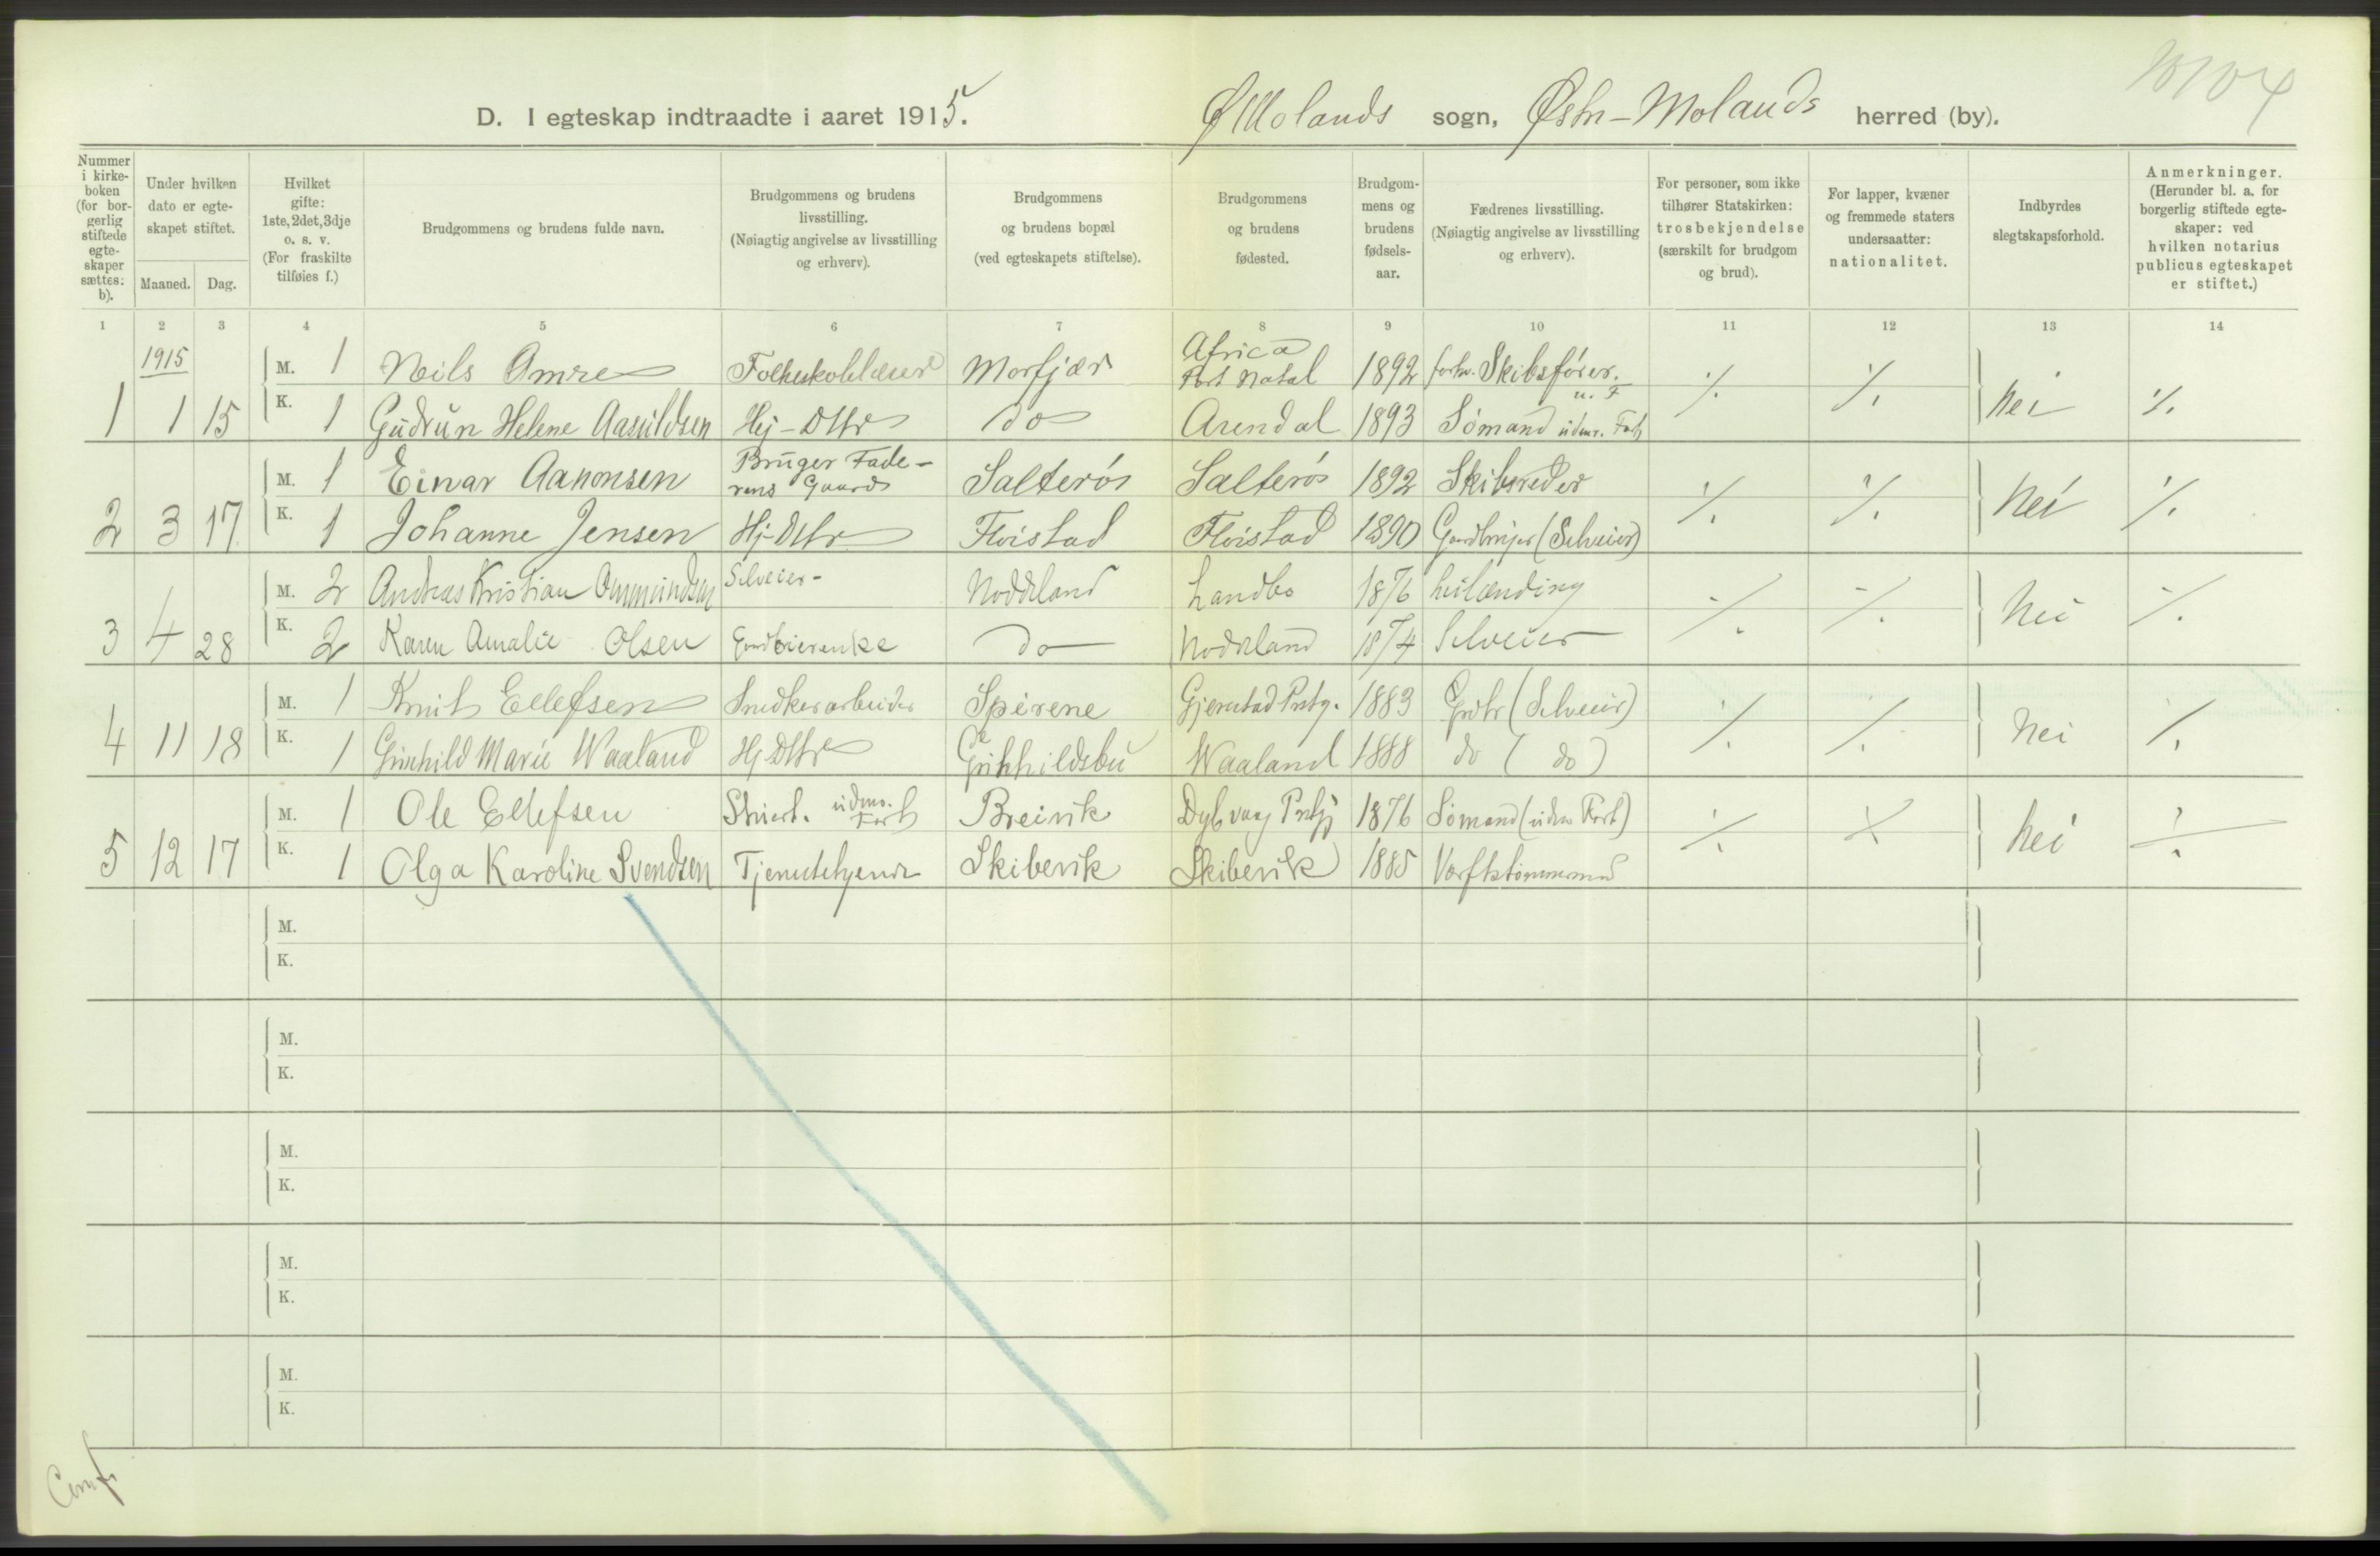 D. I egteskap indtraadte i aaret 1915. Ø Molands sogn, Østre-Molands herred (by).
Nummer i kirke-boken (for bor-gerlig stiftede egte-skaper sættes: b).
Under hvilken dato er egte-skapet stiftet.
Maaned. Dag.
Hvilket gifte: 1ste, 2det, 3dje o. s. v. (For fraskilte tilføies f.)
Brudgommens og brudens fulde navn.
Brudgommens og brudens livsstilling. (Nøiagtig angivelse av livsstilling og erhverv).
Brudgommens og brudens bopæl (ved egteskapets stiftelse).
Brudgommens og brudens fødested.
Brudgom-mens og brudens fødsels-aar.
Fædrenes livsstilling. (Nøiagtig angivelse av livsstilling og erhverv).
For personer, som ikke tilhører Statskirken: trosbekjendelse (særskilt for brudgom og brud).
For lapper, kvæner og fremmede staters undersaatter: nationalitet.
Indbyrdes slegtskapsforhold.
Anmerkninger. (Herunder bl. a. for borgerlig stiftede egte-skaper: ved hvilken notarius publicus egteskapet er stiftet.)
1 2 3 4 5 6 7 8 9 10 11 12 13 14
1915
M. 1 Neils Omre Folkeskolelærer Morfjær Africa Port Natal 1892 forhv. Skibsfører. u. F
1 1 15 K. 1 Gudrun Helene Aasuldsen Hj-Dttr do Arendal 1893 Sømand udenr. Fart ·/. ·/. Nei ·/.
M. 1 Einar Aanonsen Bruger Fade-rens Gaard Salterøs Salterøs 1892 Skibsreder
2 3 17 K. 1 Johanne Jensen Hj-Dttr Flvistad Flvistad 1890 Gaardbruger (Selveier) ·/. ·/. Nei ·/.
M. 2 Andreas Kristian Ommundsen Selveier- Noddeland Landbo 1876 huslænding
3 4 28 K. 2 Karen Amalie Olsen Gaardbrierenke do Noddeland 1874 Selveier ·/. ·/. Nei ·/.
M. 1 Knut Ellefsen Snedkerarbeider Spirene Gjerestad Prstg. 1883 Grdbr (Selveier)
4 11 18 K. 1 Gunhild Marie Waaland Hj Dttr Gunhildsbu Waaland 1888 do (do) ·/. ·/. Nei ·/.
M. 1 Ole Ellefsen Stuert. udenr. Fart Breivik Dybvaag Prstgj 1876 Sømand (udenr Fart)
5 12 17 K. 1 Olga Karoline Svendsen Tjenestepige Skibevik Skibevik 1885 Værftstømmermand ·/. ·/. Nei ·/.
M.
K.
M.
K.
M.
K.
M.
K.
M.
K.